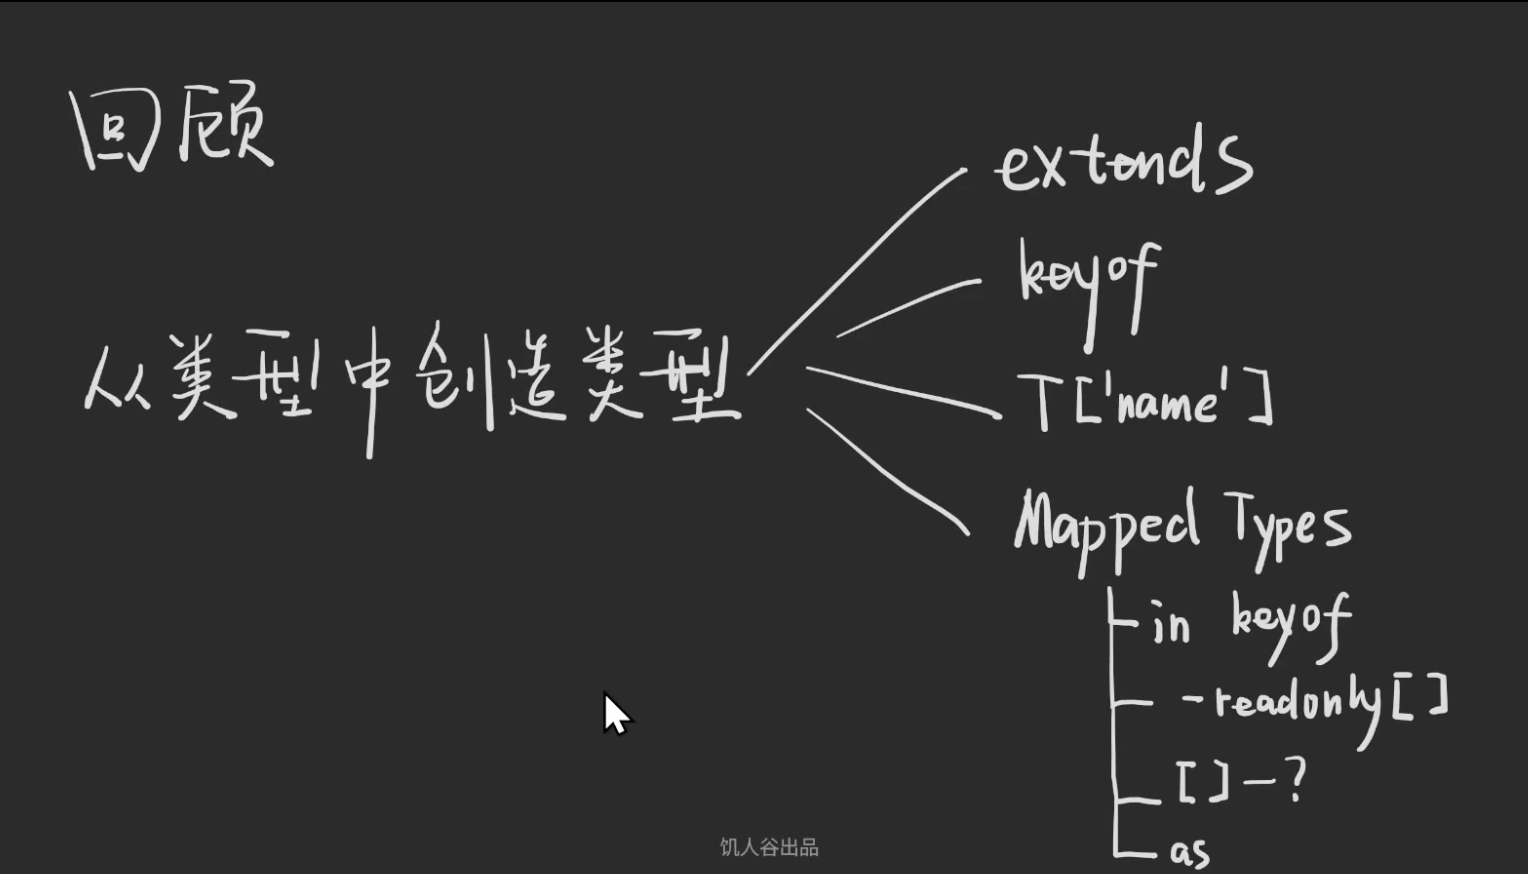 回顾
从类型中创造类型
extends
keyof
T['name']
Mapped Types
in keyof
-readonly[]
[]-?
as
饥人谷出品